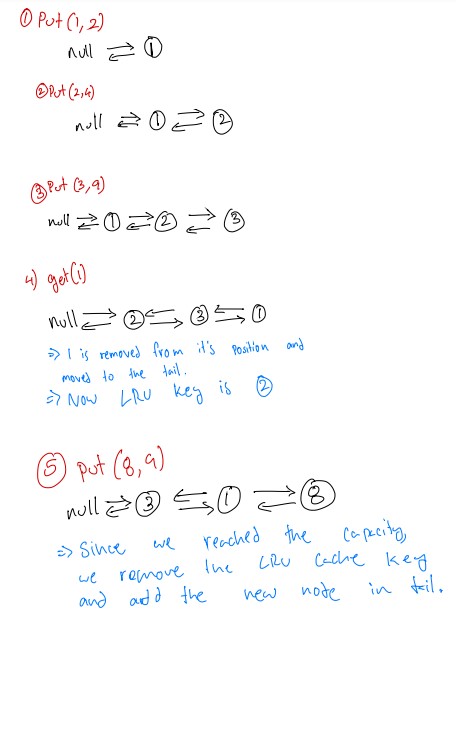 ① Put (1, 2)
null ⇄ ①
② Put (2, 4)
null ⇄ ① ⇄ ②
③ Put (3, 9)
null ⇄ ① ⇄ ② ⇄ ③
4) get(1)
null ⇄ ② ⇆ ③ ⇆ ①
⇒ 1 is removed from it's position and
moved to the tail.
⇒ Now LRU key is ②
⑤ put (8, 9)
null ⇄ ③ ⇆ ① ⇄ ⑧
⇒ Since we reached the capacity,
we remove the LRU Cache key
and add the new note in tail.